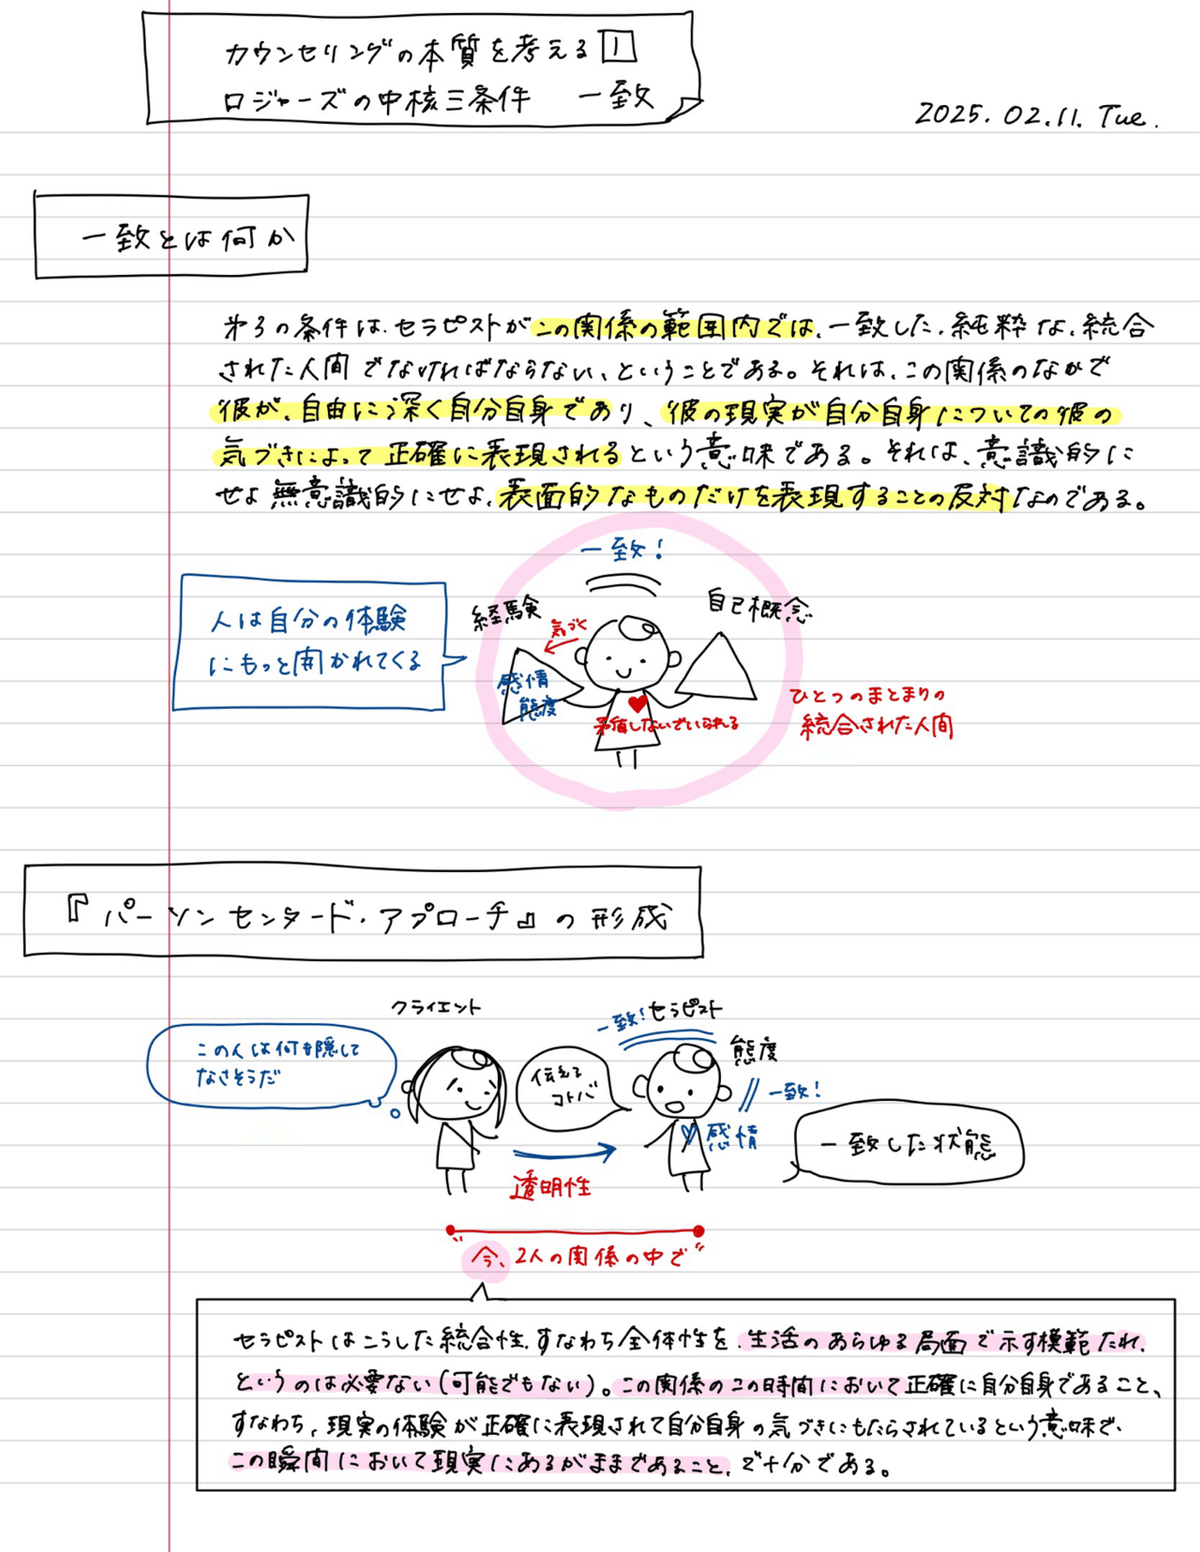 カウンセリングの本質を考える 1
ロジャーズの中核三条件 一致
2025.02.11. Tue.
一致とは何か
第3の条件は、セラピストがこの関係の範囲内では、一致した、純粋な、統合
された人間でなければならない、ということである。それは、この関係のなかで
彼が、自由に深く自分自身であり、彼の現実が自分自身についての彼の
気づきによって正確に表現されるという意味である。それは、意識的に
せよ無意識的にせよ、表面的なものだけを表現することの反対なのである。
一致!
人は自分の体験
にもっと開かれてくる
経験
気づく
自己概念
感情
態度
矛盾しないでいられる
ひとつのまとまりの
統合された人間
『パーソンセンタード・アプローチ』の形成
クライエント
一致!セラピスト
この人は何も隠して
なさそうだ
伝える
コトバ
態度
一致!
感情
一致した状態
透明性
"今、2人の関係の中で"
セラピストはこうした統合性、すなわち全体性を、生活のあらゆる局面で示す模範たれ、
というのは必要ない(可能でもない)。この関係のこの時間において正確に自分自身であること、
すなわち、現実の体験が正確に表現されて自分自身の気づきにもたらされているという意味で、
この瞬間において現実にあるがままであること、で十分である。